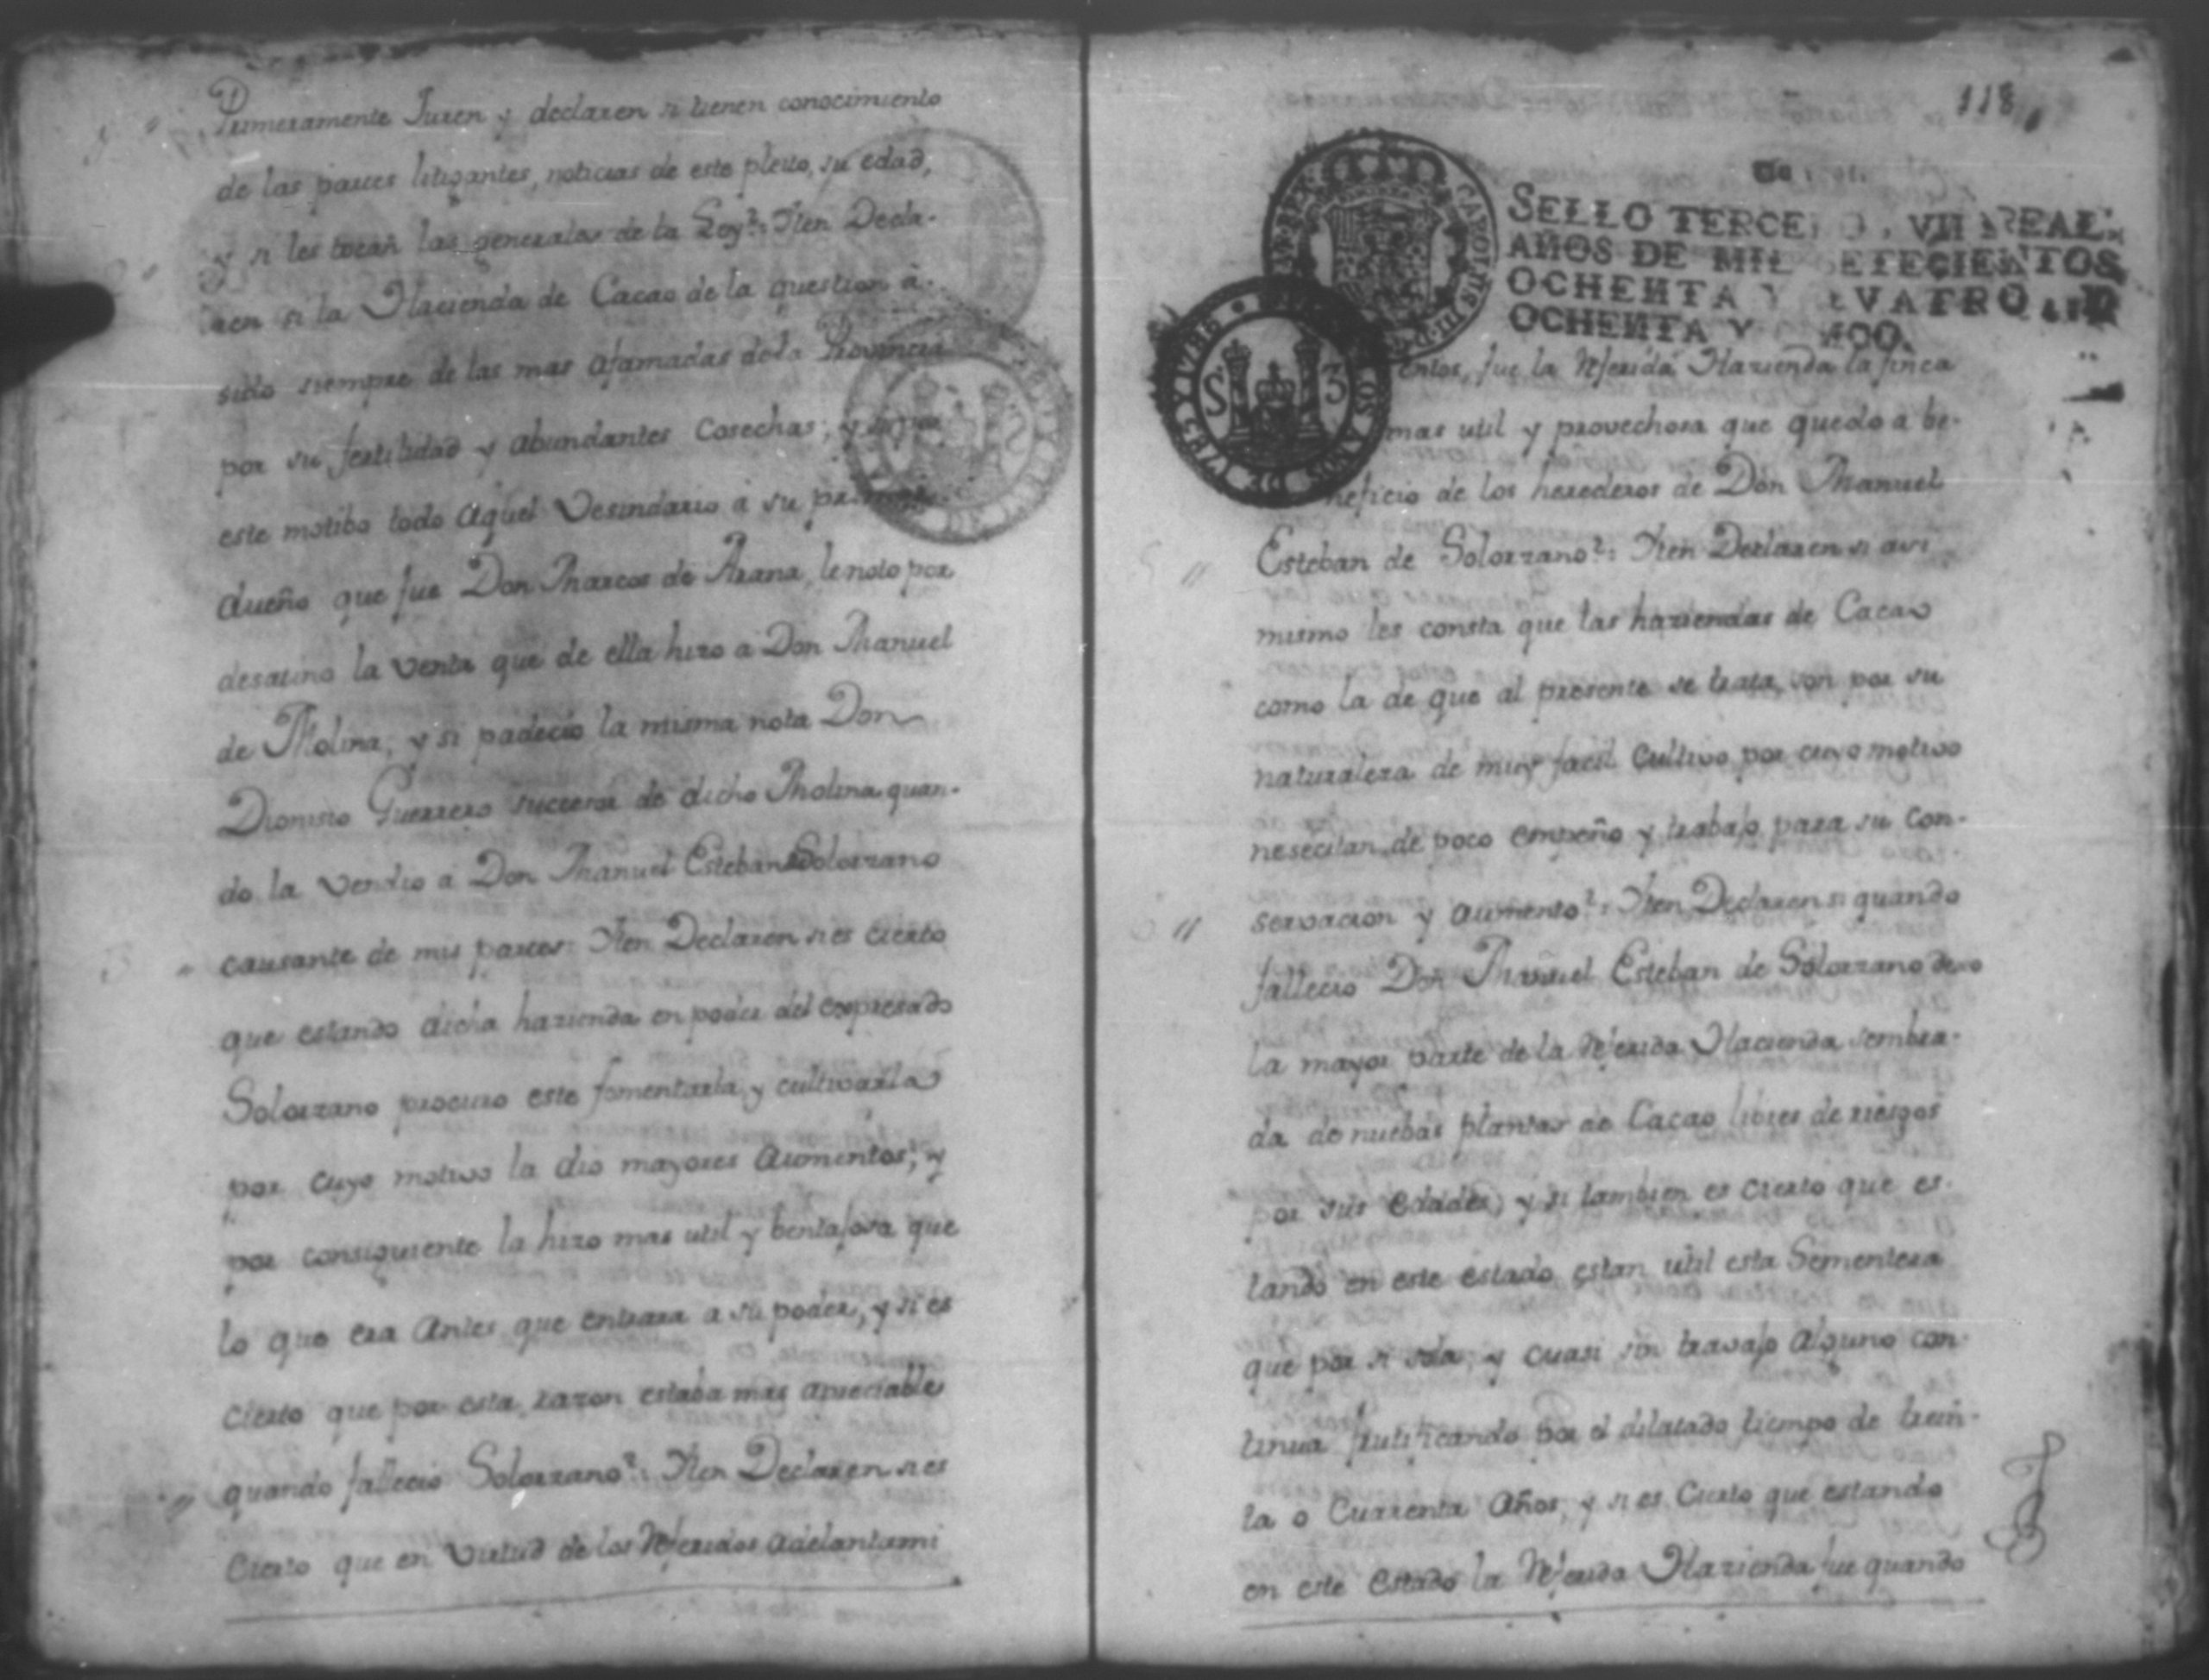 Primeramente Juren y declaren si tienen conocimiento
de las partes litigantes, noticias de este pleito, su edad,
y si les tocan las generales de la Ley?: Iten Decla-
ren si la Hacienda de Cacao de la question à
sido siempre de las mas afamadas de la Provincia
por su fertilidad y abundantes Cosechas; y si por
este motibo todo aquel Vesindario a su
dueño que fue Don Marcos de Arana, le noto por
desatino la venta que de ella hizo a Don Manuel
de Molina; y si padecio la misma nota Don
Dionisio Guerrero sucesor de dicho Molina quan-
do la vendio a Don Manuel Esteban de Solorzano
causante de mis partes: Iten Declaren si es cierto
que estando dicha hazienda en poder del expresado
Solorzano procuro este fomentarla, y cultivarla
por cuyo motivo la dio mayores aumentos; y
por consiguiente la hizo mas util y bentajosa que
lo que era antes que entrara a su poder, y si es
cierto que por esta razon estaba mas apreciable
quando fallecio Solorzano?: Iten Declaren si es
Cierto que en virtud de los referidos adelantami
118
SELLO TERCERO, VN REAL,
AÑOS DE MIL SETECIENTOS
OCHENTA Y QVATRO, Y
OCHENTA Y CINCO.
CAROLUS III D.G.
S 3
entos, fue la referida Hazienda la finca
mas util y provechosa que quedo a be-
neficio de los herederos de Don Manuel
Esteban de Solorzano?: Iten Declaren si asi
5 //
mismo les consta que las haziendas de Cacao
como la de que al presente se trata, son por su
naturaleza de muy facil Cultivo por cuyo motivo
nesecitan de poco empeño y trabajo para su con-
servacion y aumento?: Iten Declaren si quando
6 //
fallecio Don Manuel Esteban de Solorzano dexo
la mayor parte de la referida Hacienda sembra-
da de nuebas plantas de Cacao libres de riesgos
por sus edades; y si tambien es cierto que es-
tando en este estado es tan util esta Sementera
que por si sola, y cuasi sin travajo alguno con-
tinua frutificando por el dilatado tiempo de trein-
ta o Cuarenta años, y si es Cierto que estando
en este estado la referida Hazienda fue quando